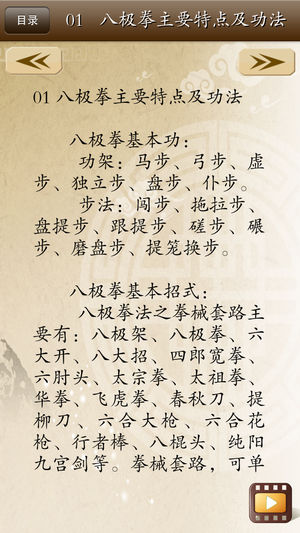 目录
01 八极拳主要特点及功法
01 八极拳主要特点及功法
八极拳基本功：
功架：马步、弓步、虚
步、独立步、盘步、仆步。
步法：闯步、拖拉步、
盘提步、跟提步、磋步、碾
步、磨盘步、提笼换步。
八极拳基本招式：
八极拳法之拳械套路主
要有：八极架、八极拳、六
大开、八大招、四郎宽拳、
六肘头、太宗拳、太祖拳、
华拳、飞虎拳、春秋刀、提
柳刀、六合大枪、六合花
枪、行者棒、八棍头、纯阳
九宫剑等。拳械套路，可单